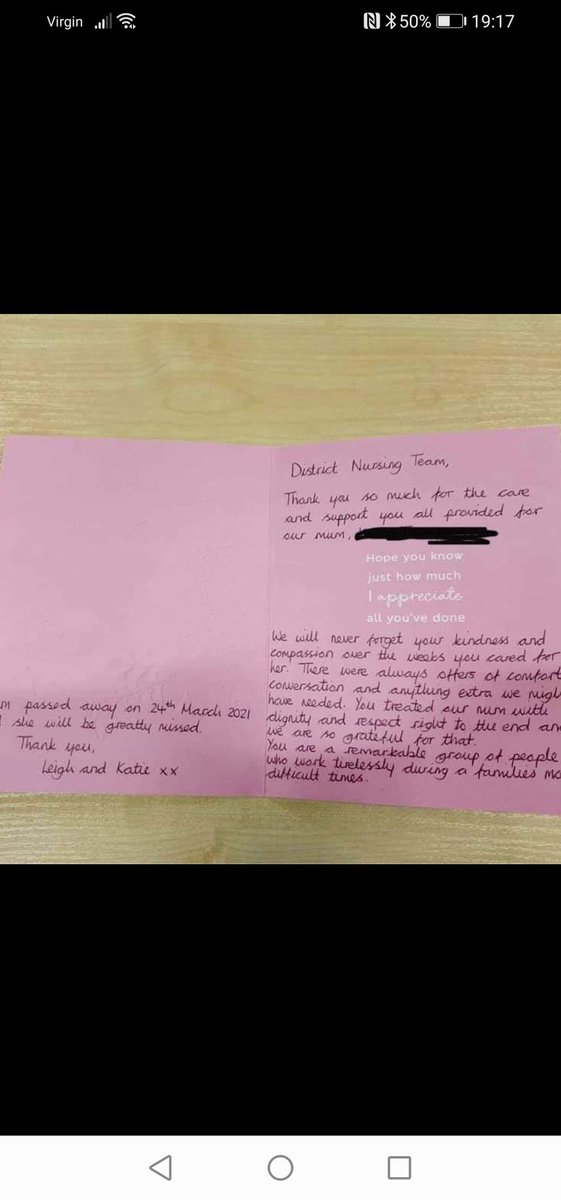 Virgin 50% 19:17
District Nursing Team,
Thank you so much for the care
and support you all provided for
our mum,
Hope you know
just how much
I appreciate
all you've done
We will never forget your kindness and
compassion over the weeks you cared for
her. There were always offers of comfort
conversation and anything extra we migh
have needed. You treated our mum with
dignity and respect right to the end an
we are so grateful for that.
You are a remarkable group of people
who work tirelessly during a families mo
difficult times.
m passed away on 24th March 2021
she will be greatly missed.
Thank you,
Leigh and Katie xx